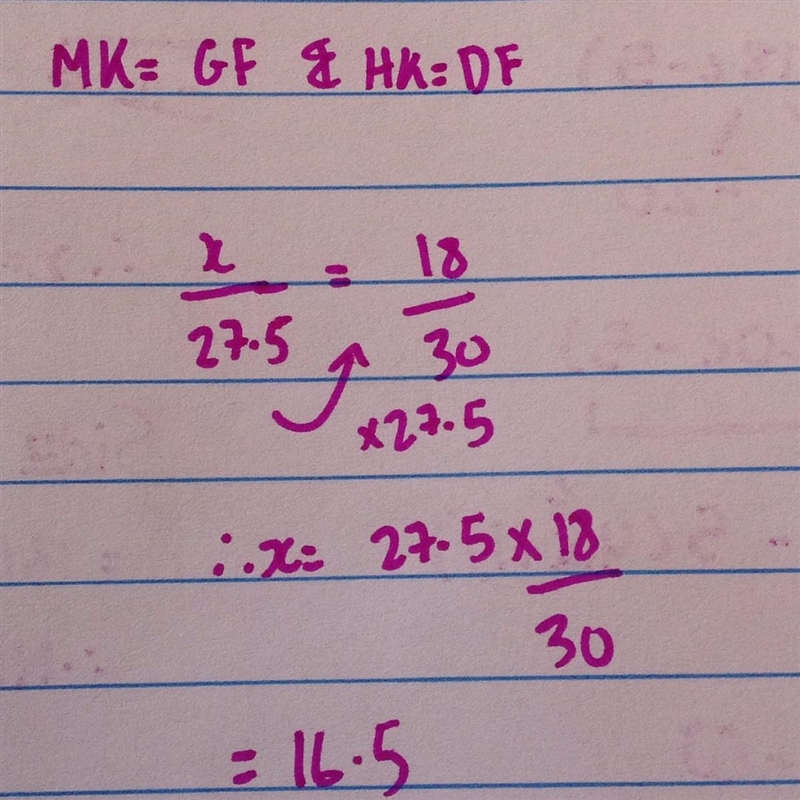 MK= GF & HK=DF
x/27.5 = 18/30
×27.5
∴x= 27.5 × 18/30
= 16.5